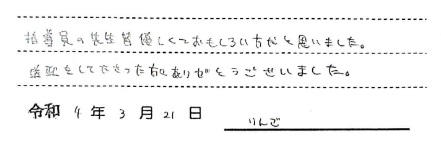 指導員の先生皆優しくておもしろい方だと思いました。
送迎をしてくださった方もありがとうございました。
令和 4 年 3 月 21 日
りんご